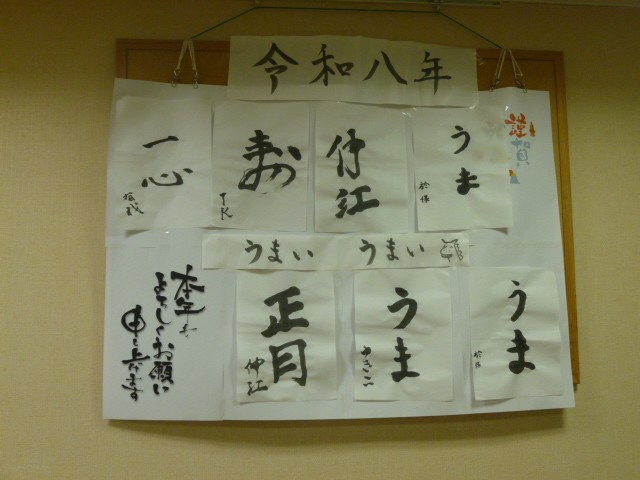 令和八年
謹賀
うま
仲江
寿
T.K
一心
うまい
うまい
うま
うま
ゆきこ
正月
仲江
本年も
よろしくお願い
申し上げます